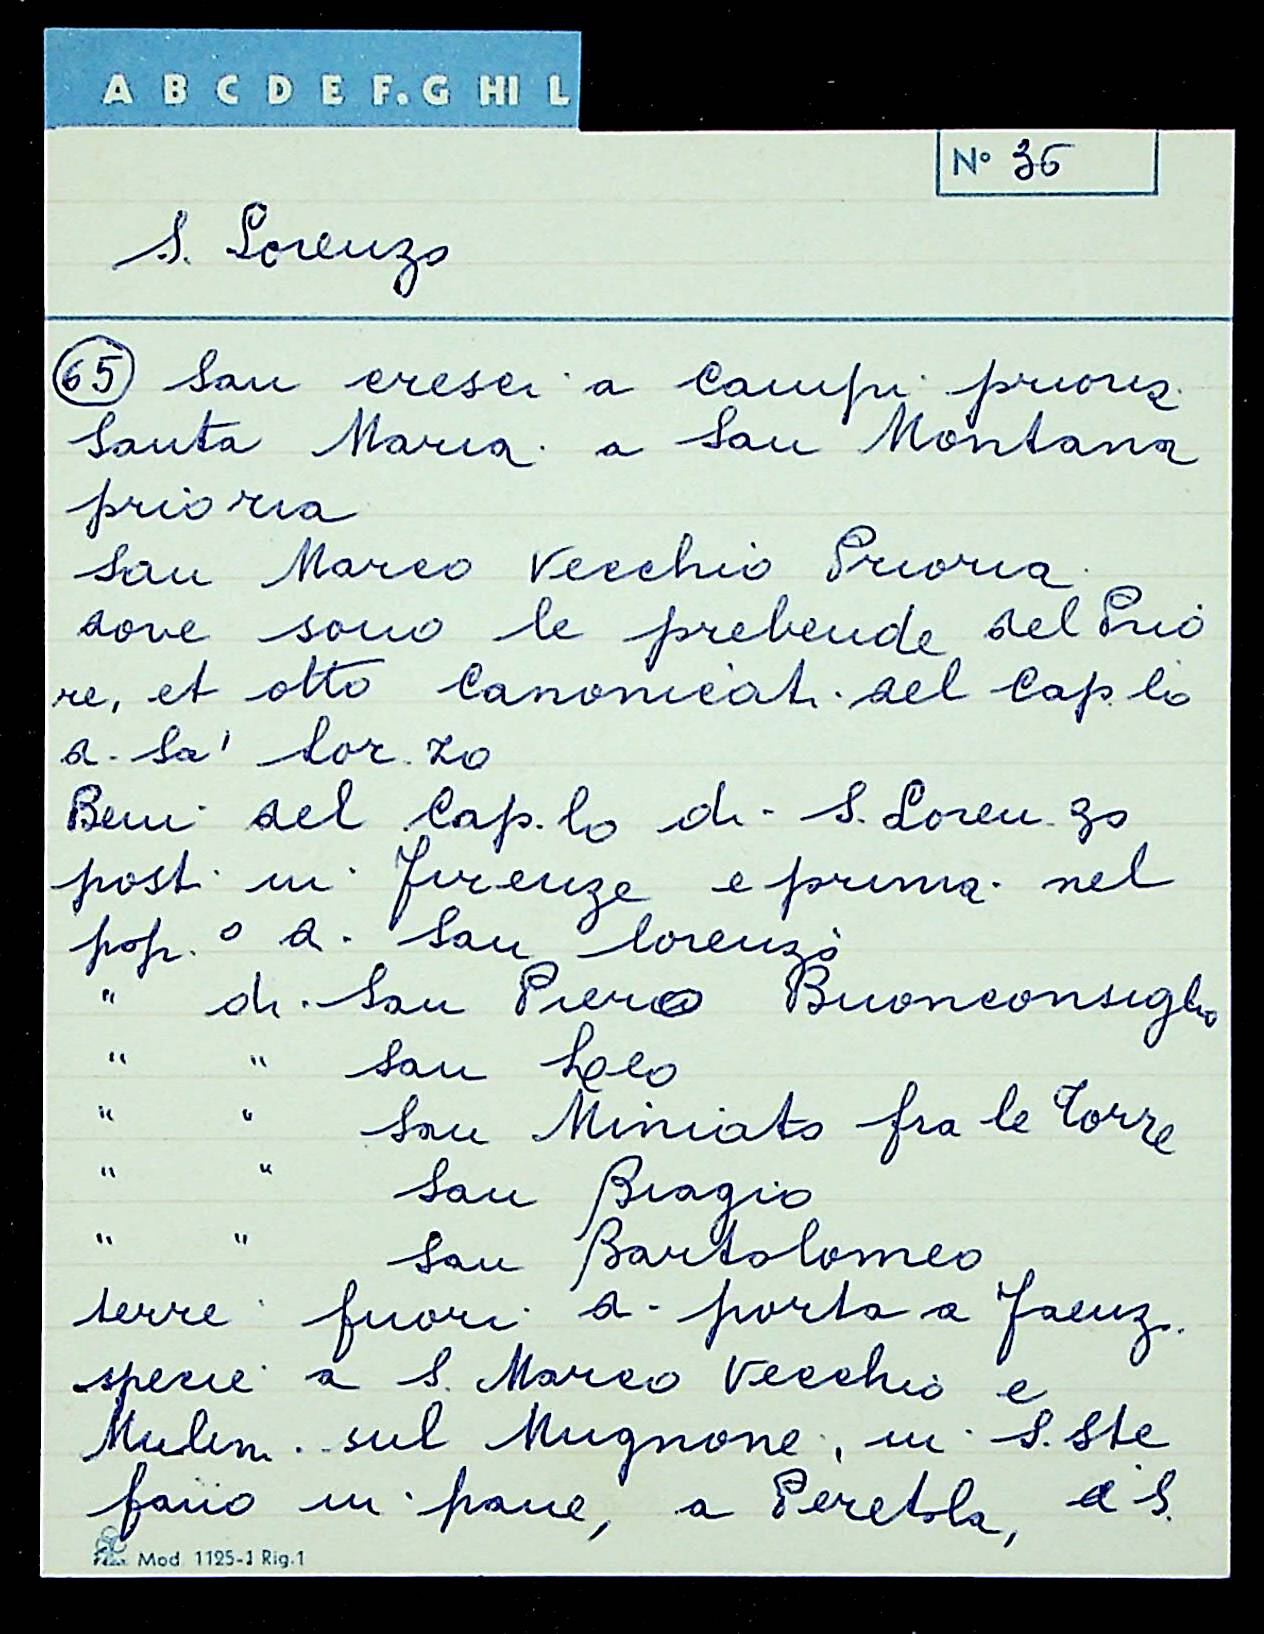 A B C D E F. G HI L
N° 36
S. Lorenzo
65 San Cresci a Campi prioria
Santa Maria a San Montana
prioria
San Marco Vecchio Prioria
dove sono le prebende del Prio
re, et otto Canonicati del Cap.lo
di Sa' Lor.zo
Beni del Cap.lo di S. Loren.zo
posti in Firenze e prima nel
pop.° di San Lorenzo
" di San Piero Buonconsiglio
" " San Leo
" " San Miniato fra le Torre
" " San Biagio
" " San Bartolomeo
terre fuori di porta a Faenz.
specie a S. Marco Vecchio e
Mulin. sul Mugnone, in S. Ste
fano in pane, a Peretola, a S.
Mod. 1125-1 Rig.1